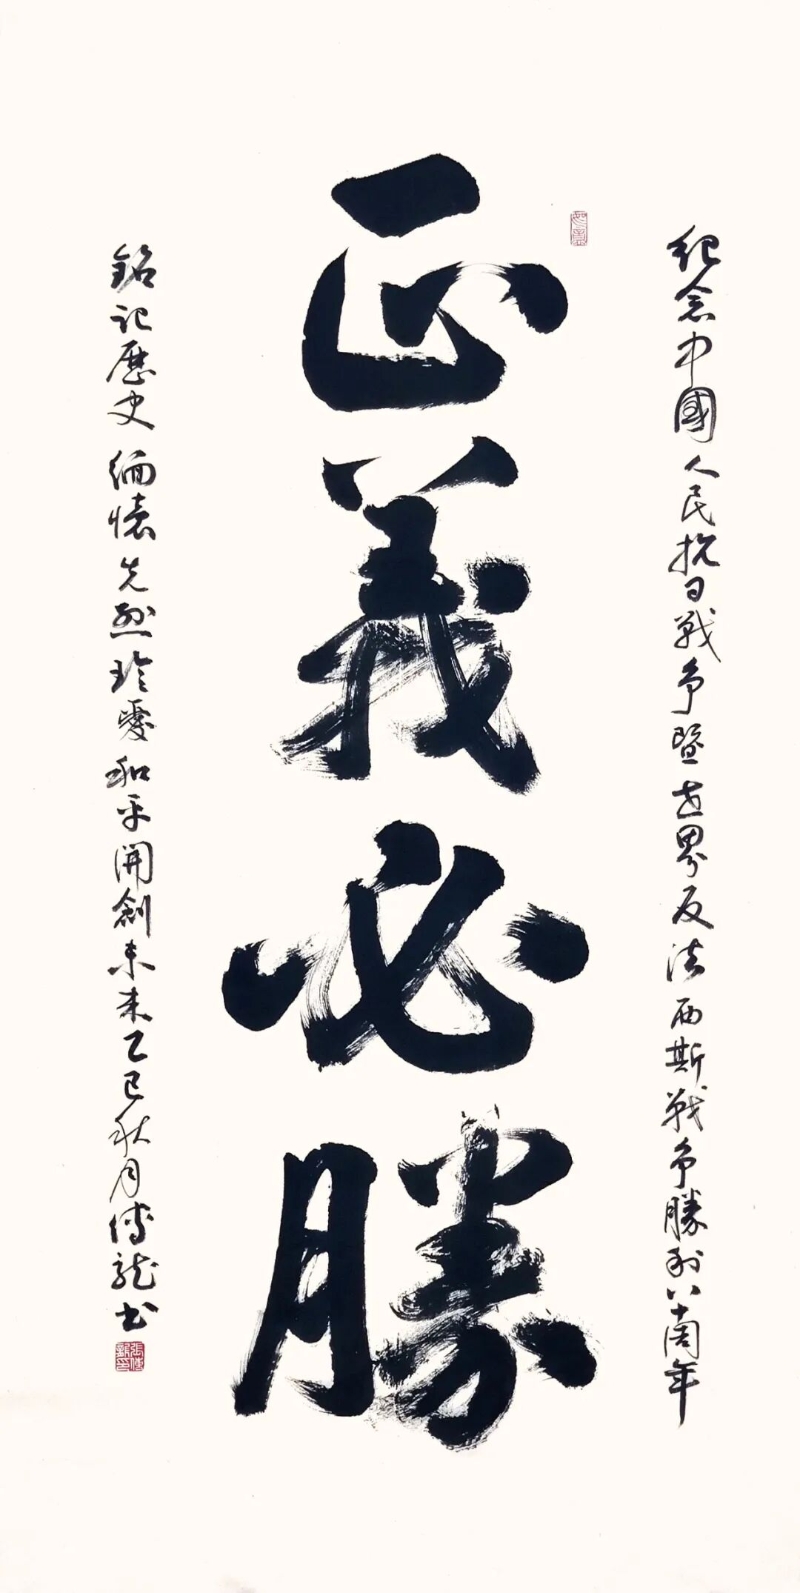 紀念中國人民抗日戰争暨世界反法西斯戰争勝利八十周年
正義必勝
銘記歷史 緬懷先烈 珍愛和平 開創未来 乙巳秋月傅龍書